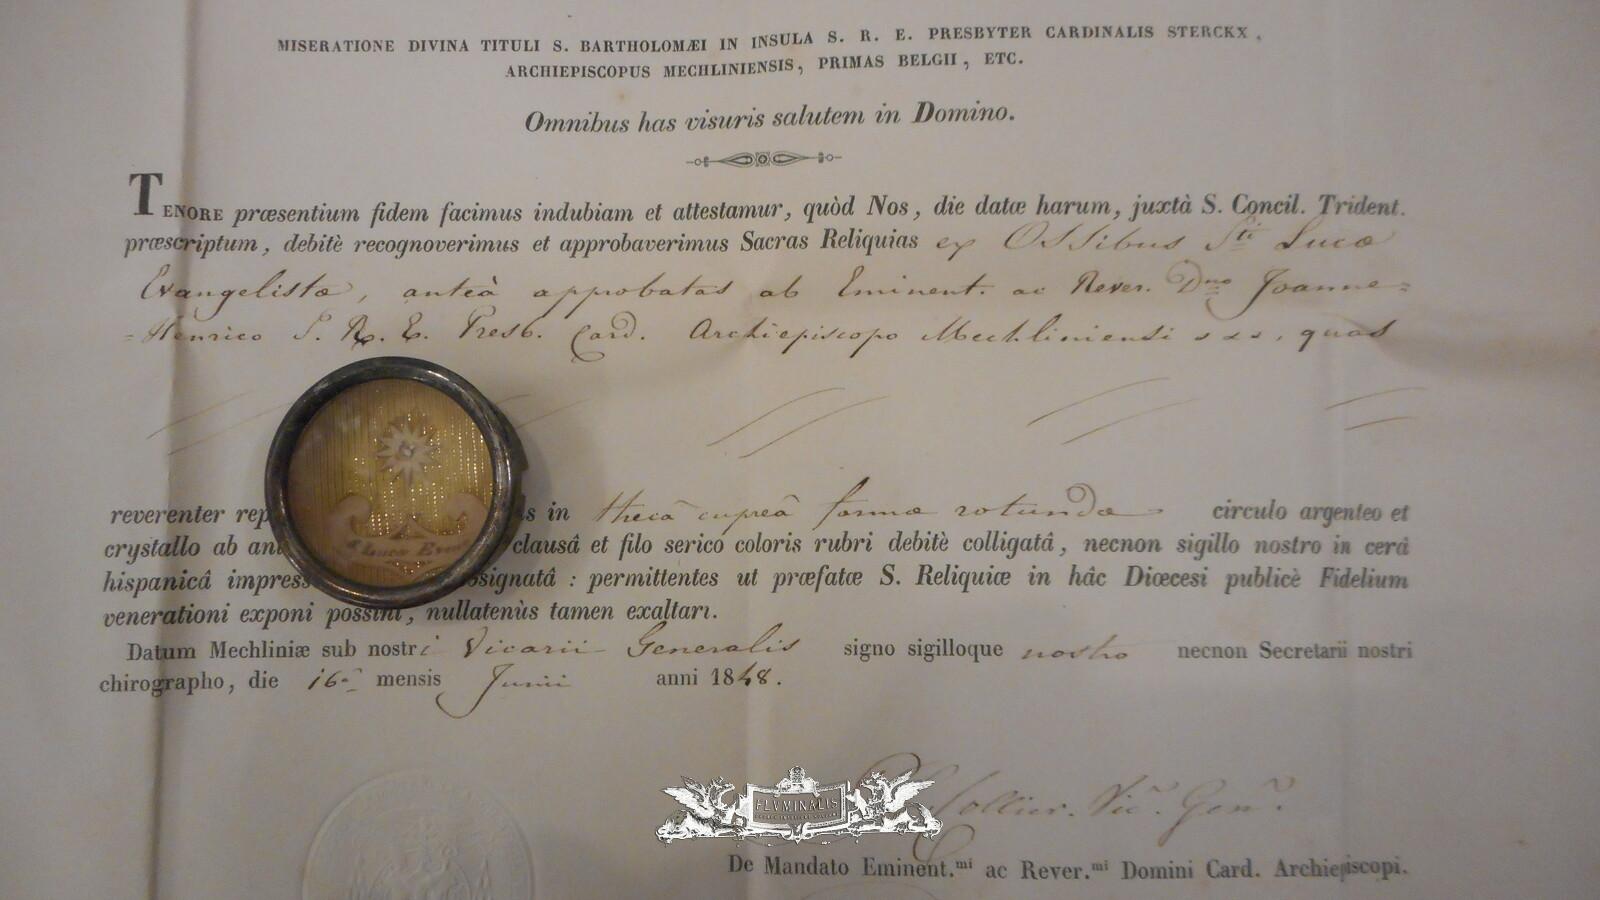 MISERATIONE DIVINA TITULI S. BARTHOLOMÆI IN INSULA S. R. E. PRESBYTER CARDINALIS STERCKX,
ARCHIEPISCOPUS MECHLINIENSIS, PRIMAS BELGII, ETC.
Omnibus has visuris salutem in Domino.
TENORE præsentium fidem facimus indubiam et attestamur, quòd Nos, die datæ harum, juxtà S. Concil. Trident.
præscriptum, debitè recognoverimus et approbaverimus Sacras Reliquias ex Ossibus Sti Lucæ
Evangelistæ, anteà approbatas ab Eminent. ac Rever. Dno Joanne=
=Henrico S. R. E. Presb. Card. Archiepiscopo Mechliniensi quas
reverenter in thecâ cupreâ formæ rotundæ circulo argenteo et
crystallo ab clausâ et filo serico coloris rubri debitè colligatâ, necnon sigillo nostro in cerâ
hispanicâ : permittentes ut præfatæ S. Reliquiæ in hâc Diœcesi publicè Fidelium
venerationi exponi possint, nullatenùs tamen exaltari.
Luca
Datum Mechliniæ sub nostri Vicarii Generalis signo sigilloque nostro necnon Secretarii nostri
chirographo, die 16â mensis Junii anni 1848.
FLVMINALIS
Vic. Gen.
De Mandato Eminent.mi ac Rever.mi Domini Card. Archiepiscopi.